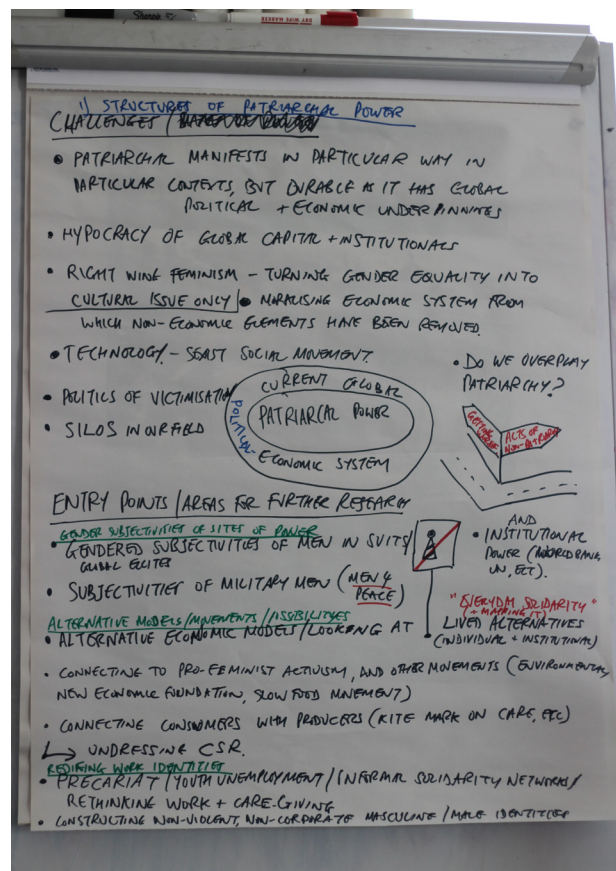 Sharpie
DRY WIPE MARKER
1) STRUCTURES OF PATRIARCHAL POWER
CHALLENGES /
• PATRIARCHAL MANIFESTS IN PARTICULAR WAY IN
PARTICULAR CONTEXTS, BUT DURABLE AS IT HAS GLOBAL
POLITICAL + ECONOMIC UNDERPINNINGS
• HYPOCRACY OF GLOBAL CAPITAL + INSTITUTIONALS
• RIGHT WING FEMINISM - TURNING GENDER EQUALITY INTO
CULTURAL ISSUE ONLY • MORALISING ECONOMIC SYSTEM FROM
WHICH NON-ECONOMIC ELEMENTS HAVE BEEN REMOVED.
• TECHNOLOGY - SOCIAL MOVEMENT.
• POLITICS OF VICTIMISATION
• SILOS IN OUR FIELD
CURRENT GLOBAL
POLITICAL-
ECONOMIC SYSTEM
PATRIARCAL POWER
• DO WE OVERPLAY
PATRIARCHY?
GETTING WORSE
ACTS OF
NON-PATRIARCHY
ENTRY POINTS / AREAS FOR FURTHER RESEARCH
GENDER SUBJECTIVITIES OF SITES OF POWER
• GENDERED SUBJECTIVITIES OF MEN IN SUITS/
GLOBAL ELITES
AND
• INSTITUTIONAL
POWER (WORLD BANK,
UN, ECT).
• SUBJECTIVITIES OF MILITARY MEN (MEN &
PEACE)
ALTERNATIVE MODELS/MOVEMENTS/POSSIBILITYES
• ALTERNATIVE ECONOMIC MODELS / LOOKING AT
"EVERYDAY SOLIDARITY"
(+ MAPPING IT)
LIVED ALTERNATIVES
(INDIVIDUAL + INSTITUTIONAL)
• CONNECTING TO PRO-FEMINIST ACTIVISM, AND OTHER MOVEMENTS (ENVIRONMENTAL,
NEW ECONOMIC FOUNDATION, SLOW FOOD MOVEMENT)
• CONNECTING CONSUMERS WITH PRODUCERS (KITE MARK ON CARE, ETC)
↳ UNDRESSING CSR.
REDIFING WORK IDENTITIES
• PRECARIAT / YOUTH UNEMPLOYMENT / INFORMAL SOLIDARITY NETWORKS/
RETHINKING WORK + CARE-GIVING
• CONSTRUCTING NON-VIOLENT, NON-CORPORATE MASCULINE / MALE IDENTITIES